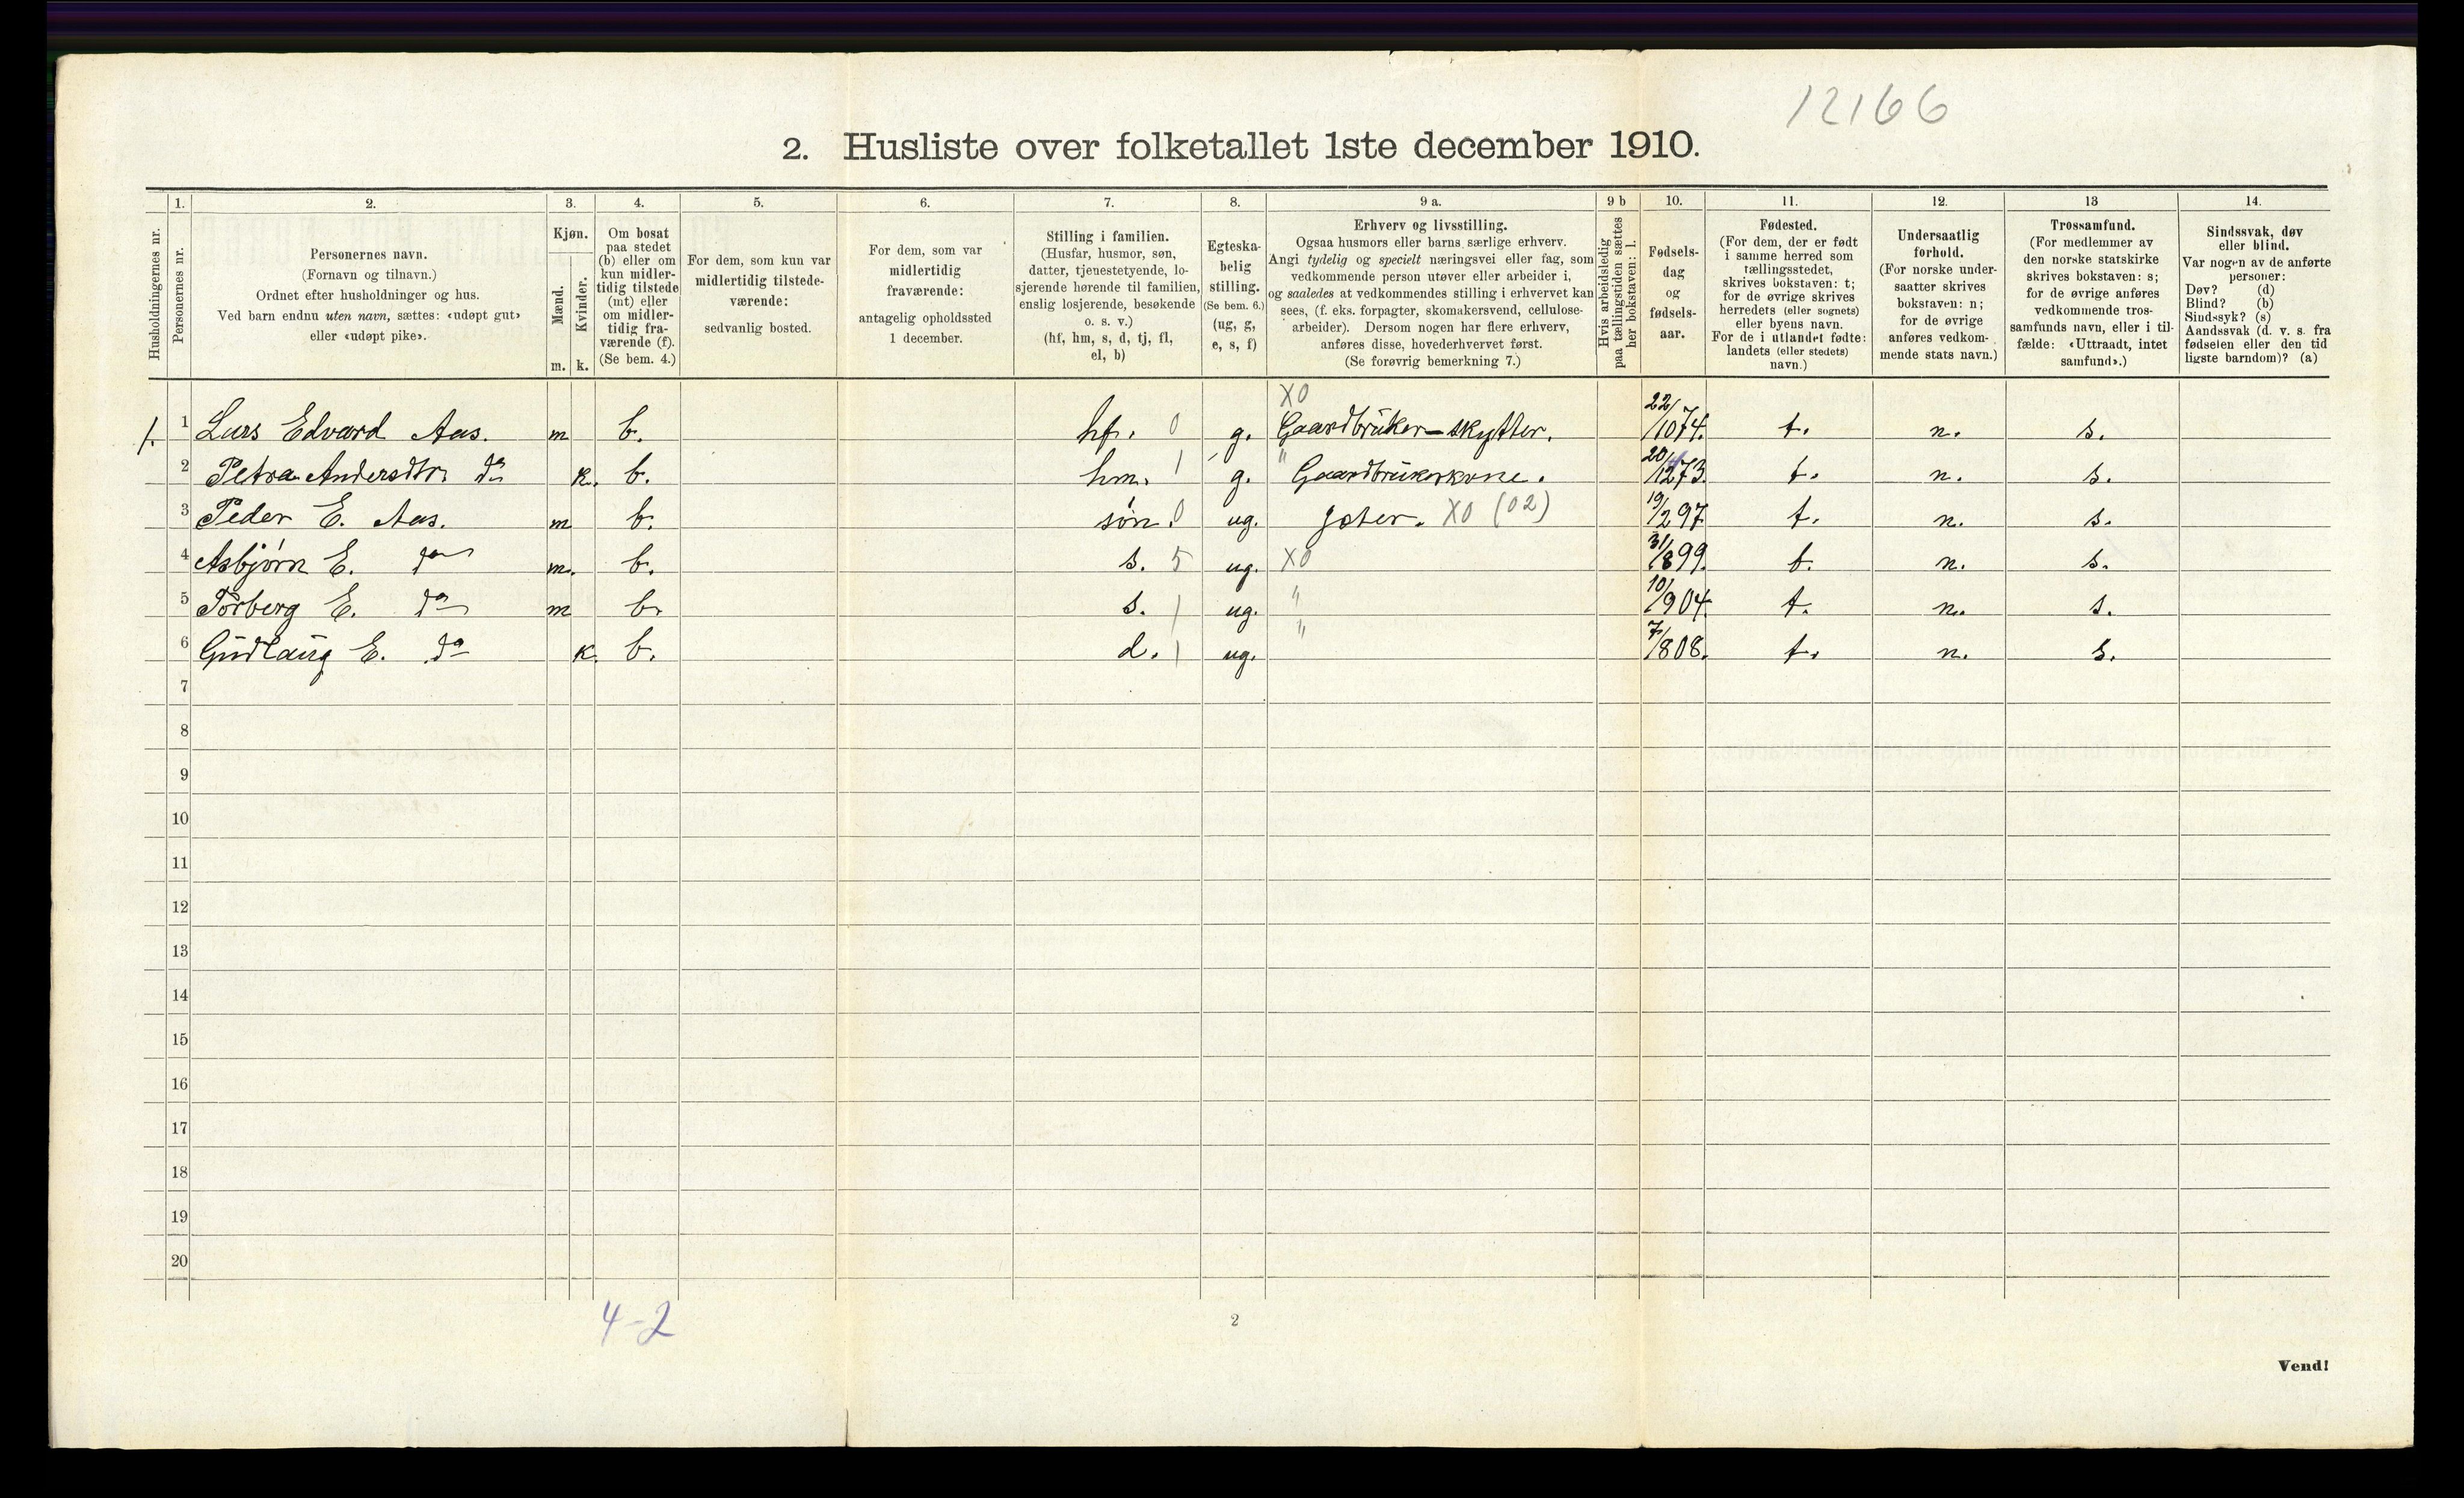 12166
2. Husliste over folketallet 1ste december 1910.
Husholdningernes nr.
1. Personernes nr.
2. Personernes navn.
(Fornavn og tilnavn.)
Ordnet efter husholdninger og hus.
Ved barn endnu uten navn, sættes: «udøpt gut»
eller «udøpt pike».
3. Kjøn.
Mænd. Kvinder.
m. k.
4. Om bosat
paa stedet
(b) eller om
kun midler-
tidig tilstede
(mt) eller
om midler-
tidig fra-
værende (f).
(Se bem. 4.)
5. For dem, som kun var
midlertidig tilstede-
værende:
sedvanlig bosted.
6. For dem, som var
midlertidig
fraværende:
antagelig opholdssted
1 december.
7. Stilling i familien.
(Husfar, husmor, søn,
datter, tjenestetyende, lo-
sjerende hørende til familien,
enslig losjerende, besøkende
o. s. v.)
(hf, hm, s, d, tj, fl,
el, b)
8. Egteska-
belig
stilling.
(Se bem. 6.)
(ug, g,
e, s, f)
9 a. Erhverv og livsstilling.
Ogsaa husmors eller barns særlige erhverv.
Angi tydelig og specielt næringsvei eller fag, som
vedkommende person utøver eller arbeider i,
og saaledes at vedkommendes stilling i erhvervet kan
sees, (f. eks. forpagter, skomakersvend, cellulose-
arbeider). Dersom nogen har flere erhverv,
anføres disse, hovederhvervet først.
(Se forøvrig bemerkning 7.)
9 b Hvis arbeidsledig
paa tællingstiden sættes
her bokstaven: l.
10. Fødsels-
dag
og
fødsels-
aar.
11. Fødested.
(For dem, der er født
i samme herred som
tællingsstedet,
skrives bokstaven: t;
for de øvrige skrives
herredets (eller sognets)
eller byens navn.
For de i utlandet fødte:
landets (eller stedets)
navn.)
12. Undersaatlig
forhold.
(For norske under-
saatter skrives
bokstaven: n;
for de øvrige
anføres vedkom-
mende stats navn.)
13 Trossamfund.
(For medlemmer av
den norske statskirke
skrives bokstaven: s;
for de øvrige anføres
vedkommende tros-
samfunds navn, eller i til-
fælde: «Uttraadt, intet
samfund».)
14. Sindssvak, døv
eller blind.
Var nogen av de anførte
personer:
Døv? (d)
Blind? (b)
Sindssyk? (s)
Aandssvak (d. v. s. fra
fødselen eller den tid
ligste barndom)? (a)
1. 1 Lars Edvard Aas. m b. hf. 0 g. X0 Gaardbrüker-skytter. 22/10 74. t. n. s.
2 Petra Andersdtr. do k. b. hm. 1 g. " Gaardbrükerkone. 20/12 73. t. n. s.
3 Peder E. Aas. m b. søn. 0 ug. Jæter. X0 (02) 19/2 97 t. n. s.
4 Asbjørn E. do m. b. s. 5 ug. X0 31/8 99. t. n. s.
5 Torberg E. do m b. s. 1 ug. " 10/9 04. t. n. s.
6 Gudlaug E. do k. b. d. 1 ug. " 7/8 08. t. n. s.
7
8
9
10
11
12
13
14
15
16
17
18
19
20
4-2
2
Vend!